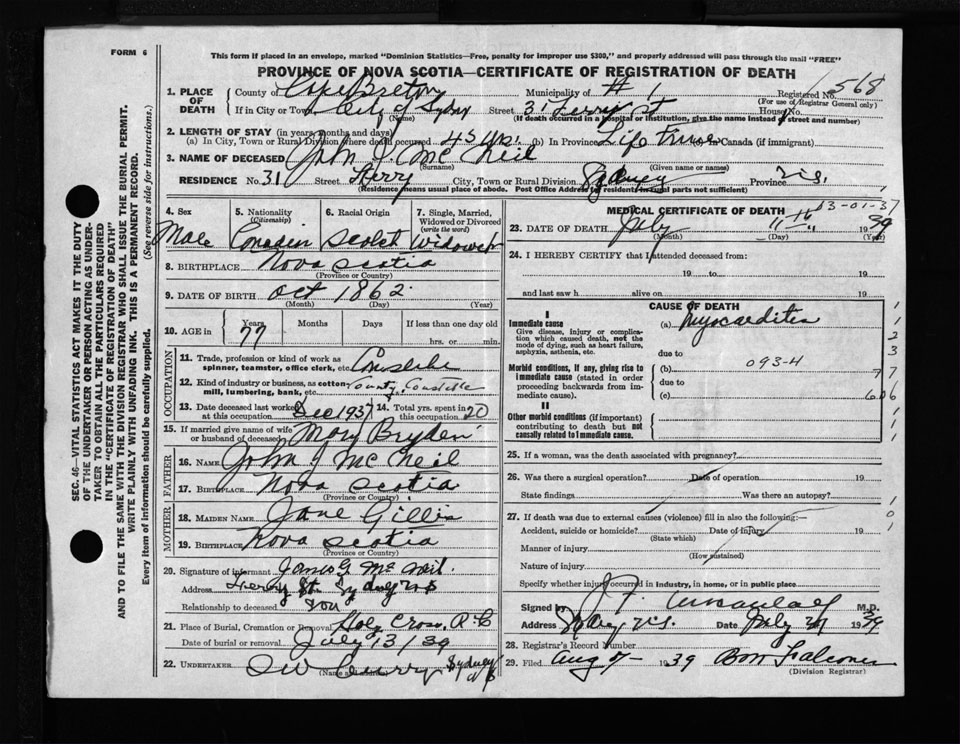 FORM 6
This form if placed in an envelope, marked "Dominion Statistics—Free, penalty for improper use $300," and properly addressed will pass through the mail "FREE"
PROVINCE OF NOVA SCOTIA—CERTIFICATE OF REGISTRATION OF DEATH
1. PLACE OF DEATH County of Cape Breton Municipality of # 1 Registered No. 568
(For use of Registrar General only)
If in City or Town City of Sydney Street 31 Ferry St House No.
(Name) (If death occurred in a hospital or institution, give the name instead of street and number)
2. LENGTH OF STAY (in years, months and days)
(a) In City, Town or Rural Division where death occurred 45 yrs. (b) In Province Life time (c) In Canada (if immigrant)
3. NAME OF DECEASED John J. McNeil
(Surname) (Given name or names)
RESIDENCE No. 31 Street Ferry City, Town or Rural Division Sydney Province N.S.
(Residence means usual place of abode. Post Office Address for residents in rural parts not sufficient)
4. Sex 5. Nationality 6. Racial Origin 7. Single, Married, Widowed or Divorced
(Citizenship) (write the word)
Male Canadin Scotch Widower
8. BIRTHPLACE Nova Scotia
(Province or Country)
9. DATE OF BIRTH Oct 1862
(Month) (Day) (Year)
10. AGE in Years Months Days If less than one day old
77 hrs. or min.
OCCUPATION
11. Trade, profession or kind of work as spinner, teamster, office clerk, etc.
12. Kind of industry or business, as cotton mill, lumbering, bank, etc. County
13. Date deceased last worked at this occupation Dec 1937 14. Total yrs. spent in this occupation 20
15. If married give name of wife or husband of deceased Mary Bryden
FATHER
16. NAME John J McNeil
17. BIRTHPLACE Nova Scotia
(Province or Country)
MOTHER
18. MAIDEN NAME Jane Gillis
19. BIRTHPLACE Nova Scotia
(Province or Country)
20. Signature of informant James G. McNeil.
Address Ferry St. Sydney NS
Relationship to deceased Son
21. Place of Burial, Cremation or Removal Holy Cross, R.C
Date of burial or removal July 13/39
22. UNDERTAKER Curry Sydney
(Name and address)
MEDICAL CERTIFICATE OF DEATH 13-01-37
23. DATE OF DEATH July 1939
(Month) (Day) (Year)
24. I HEREBY CERTIFY that I attended deceased from:
19 to 19
and last saw h alive on 19
CAUSE OF DEATH
I
Immediate cause (a) Myocarditis
Give disease, injury or complication which caused death, not the mode of dying, such as heart failure, asphyxia, asthenia, etc.
due to
Morbid conditions, if any, giving rise to immediate cause (stated in order proceeding backwards from immediate cause).
(b) 093-4
due to
(c)
II
Other morbid conditions (if important) contributing to death but not causally related to immediate cause.
25. If a woman, was the death associated with pregnancy?
26. Was there a surgical operation? Date of operation 19
State findings Was there an autopsy?
27. If death was due to external causes (violence) fill in also the following:—
Accident, suicide or homicide? Date of injury 19
(State which)
Manner of injury
(How sustained)
Nature of injury
Specify whether injury occurred in industry, in home, or in public place
Signed by M.D.
Address Sydney, N.S. Date July 1939
28. Registrar's Record Number
29. Filed Aug 1939
(Division Registrar)
SEC. 46—VITAL STATISTICS ACT MAKES IT THE DUTY OF THE UNDERTAKER OR PERSON ACTING AS UNDERTAKER TO OBTAIN ALL THE PARTICULARS REQUIRED IN THE "CERTIFICATE OF REGISTRATION OF DEATH" AND TO FILE THE SAME WITH THE DIVISION REGISTRAR WHO SHALL ISSUE THE BURIAL PERMIT.
WRITE PLAINLY WITH UNFADING INK. THIS IS A PERMANENT RECORD.
Every item of information should be carefully supplied. (See reverse side for instructions.)